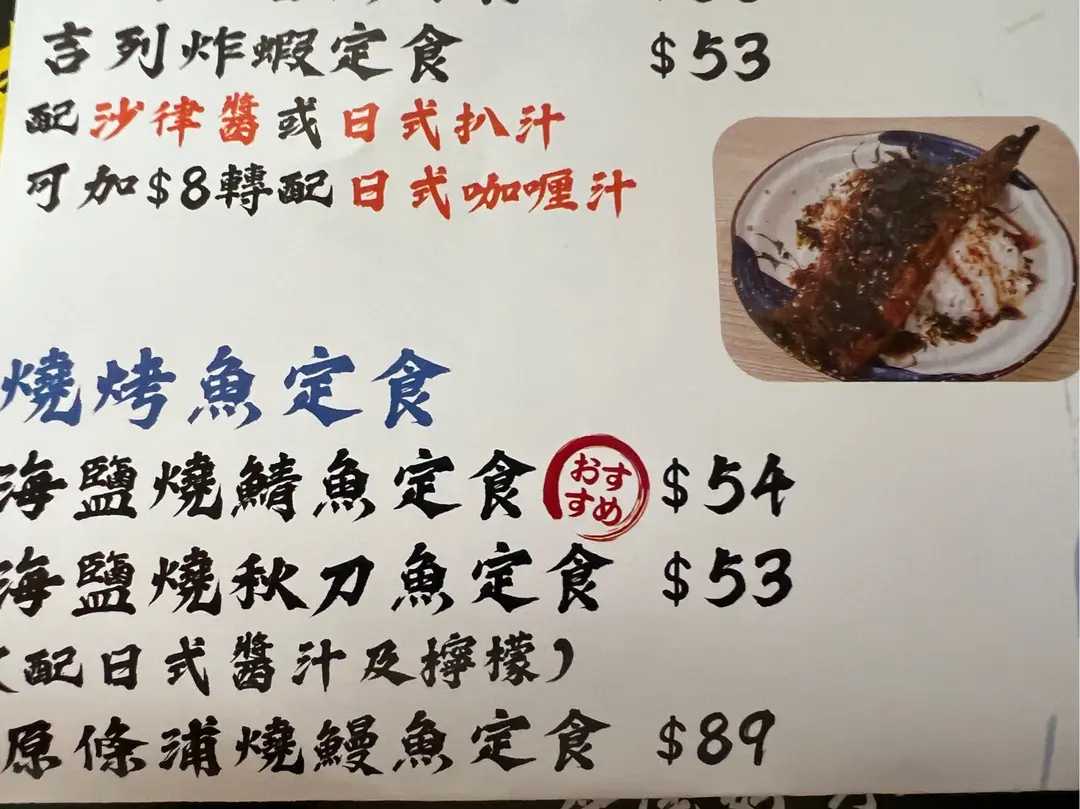 吉列炸蝦定食 $53
配沙律醬或日式扒汁
可加$8轉配日式咖喱汁
燒烤魚定食
海鹽燒鯖魚定食 おすすめ $54
海鹽燒秋刀魚定食 $53
(配日式醬汁及檸檬)
原條浦燒鰻魚定食 $89